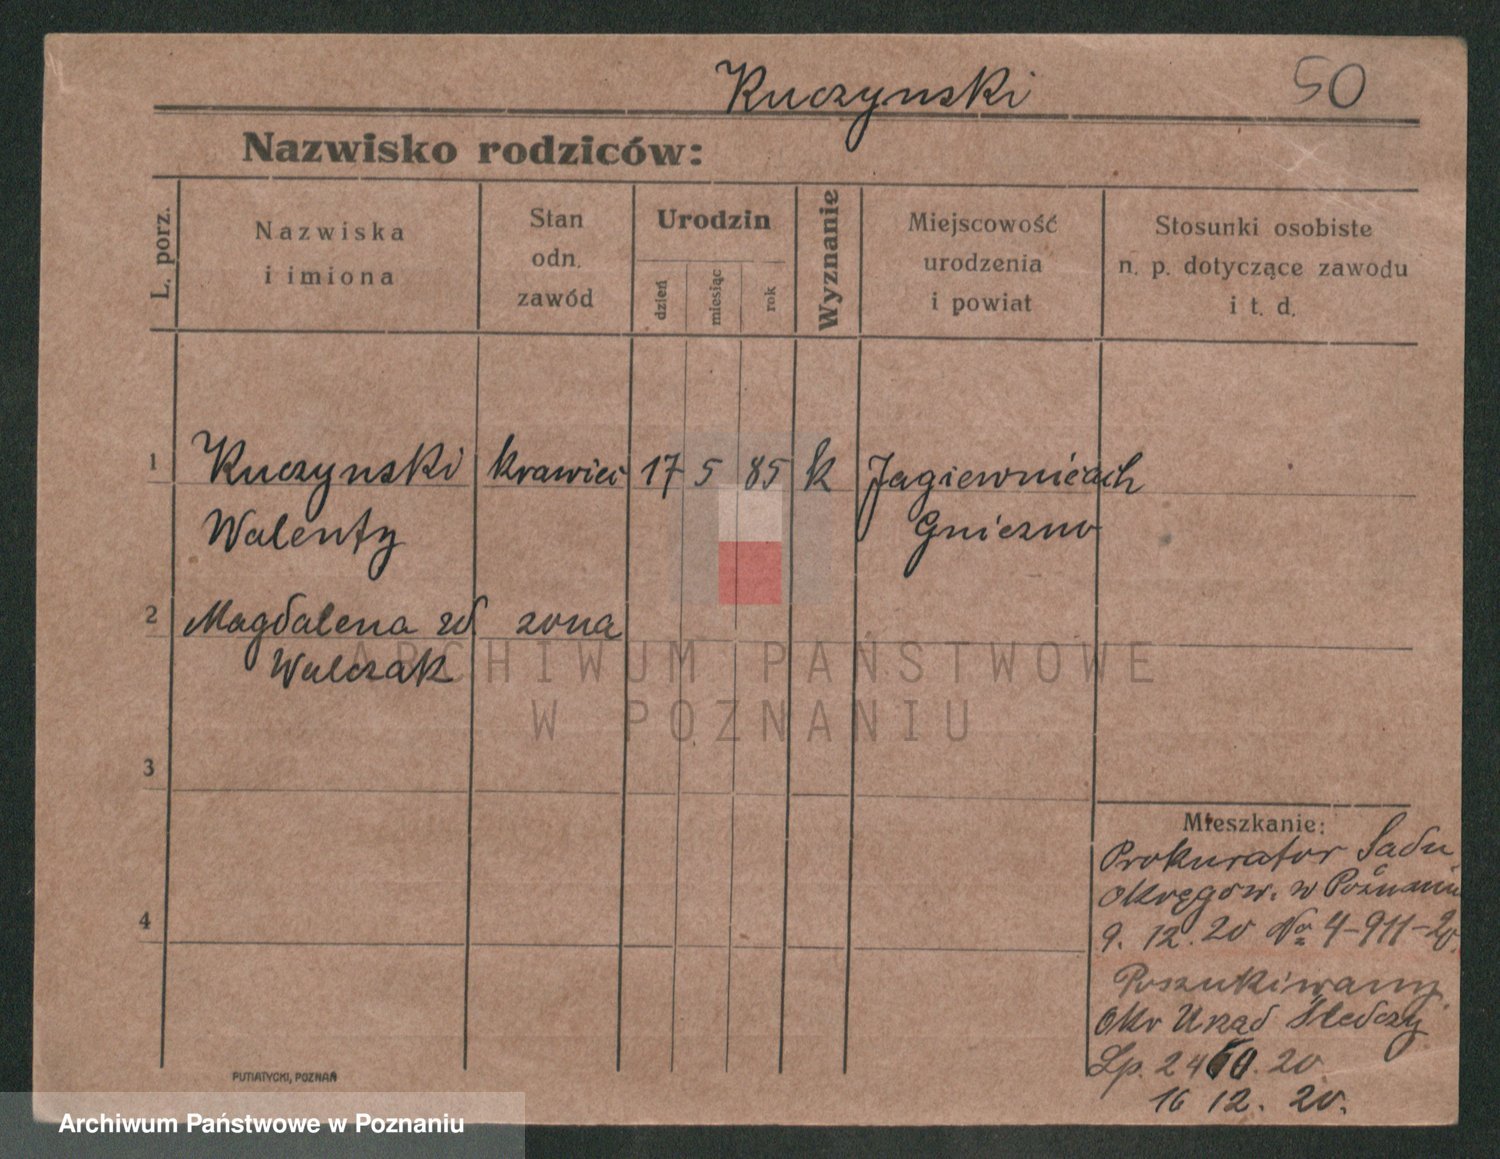 Kuczynski
50
Nazwisko rodziców:
L. porz.
Nazwiska
i imiona
Stan
odn.
zawód
Urodzin
dzień
miesiąc
rok
Wyznanie
Miejscowość
urodzenia
i powiat
Stosunki osobiste
n. p. dotyczące zawodu
i t. d.
1 Kuczynski krawiec 17 5 85 k Jagiewnicach
Walenty Gniezno
2 Magdalena zd zona
Walczak
ARCHIWUM PAŃSTWOWE
W POZNANIU
3
4
Mieszkanie:
Prokurator Sadu
Okręgow. w Poznaniu
9. 12. 20 No 4-911-20.
Poszukiwany
Okr Urząd Śledczy
Lp. 20
16 12. 20.
PUTIATYCKI, POZNAŃ
Archiwum Państwowe w Poznaniu